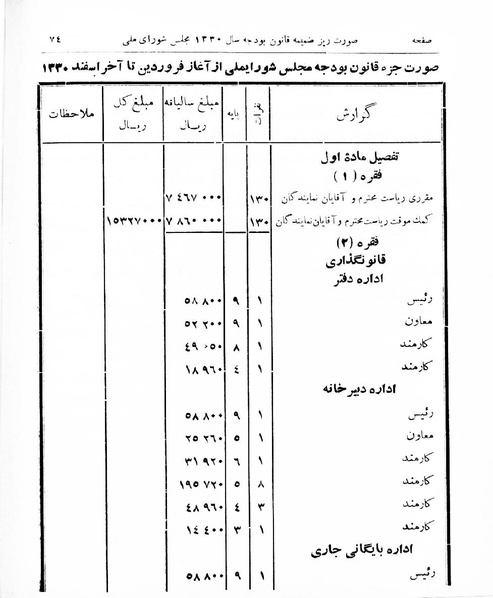 صفحه صورت ریز ضمیمه قانون بودجه سال ۱۳۳۰ مجلس شورای ملی ۷٤
صورت جزء قانون بودجه مجلس شورایملی از آغاز فروردین تا آخر اسفند ۱۳۳۰
گزارش نفرات پایه مبلغ سالیانه ریال مبلغ کل ریال ملاحظات
تفصیل مادهٔ اول
فقره (۱)
مقرری ریاست محترم و آقایان نمایندگان ۱۳۰ ۷ ٤٦۷ ۰۰۰
کمك موقت ریاست محترم و آقایان نمایندگان ۱۳۰ ۷ ۸٦۰ ۰۰۰ ۱٥۳۲۷۰۰۰
فقره (۲)
قانونگذاری
اداره دفتر
رئیس ۱ ۹ ٥۸ ۸۰۰
معاون ۱ ۹ ٥۲ ۲۰۰
کارمند ۱ ۸ ٤۹ ۰٥۰
کارمند ۱ ٤ ۱۸ ۹٦۰
اداره دبیرخانه
رئیس ۱ ۹ ٥۸ ۸۰۰
معاون ۱ ٥ ۲٥ ۲٦۰
کارمند ۱ ٦ ۳۱ ۹۲۰
کارمند ۸ ٥ ۱۹٥ ۷۲۰
کارمند ۳ ٤ ٤۸ ۹٦۰
کارمند ۱ ۳ ۱٤ ٤۰۰
اداره بایگانی جاری
رئیس ۱ ۹ ٥۸ ۸۰۰